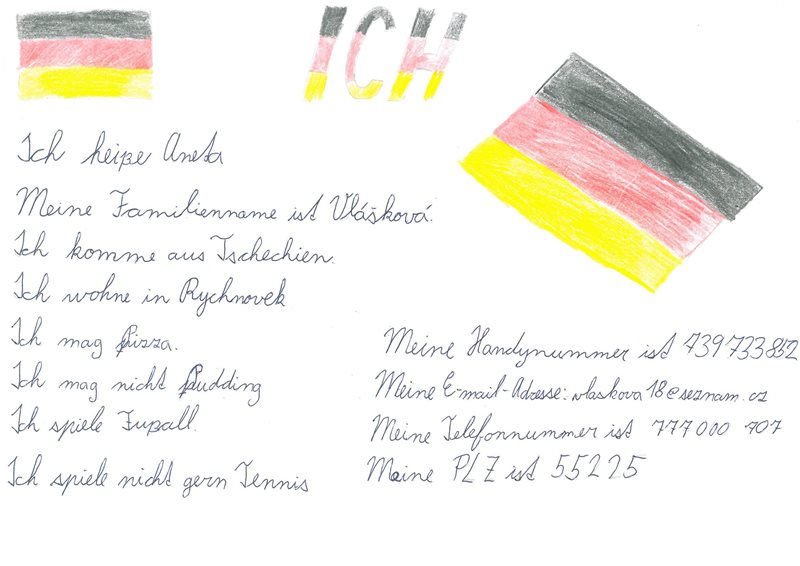 ICH
Ich heiße Aneta
Meine Familienname ist Vlášková.
Ich komme aus Tschechien.
Ich wohne in Rychnovek
Ich mag Pizza.
Ich mag nicht Pudding
Ich spiele Fußall.
Ich spiele nicht gern Tennis
Meine Handynummer ist 739 733 852
Meine E-mail-Adresse: vlaskova18@seznam.cz
Meine Telefonnummer ist 777 000 707
Meine PLZ ist 55225